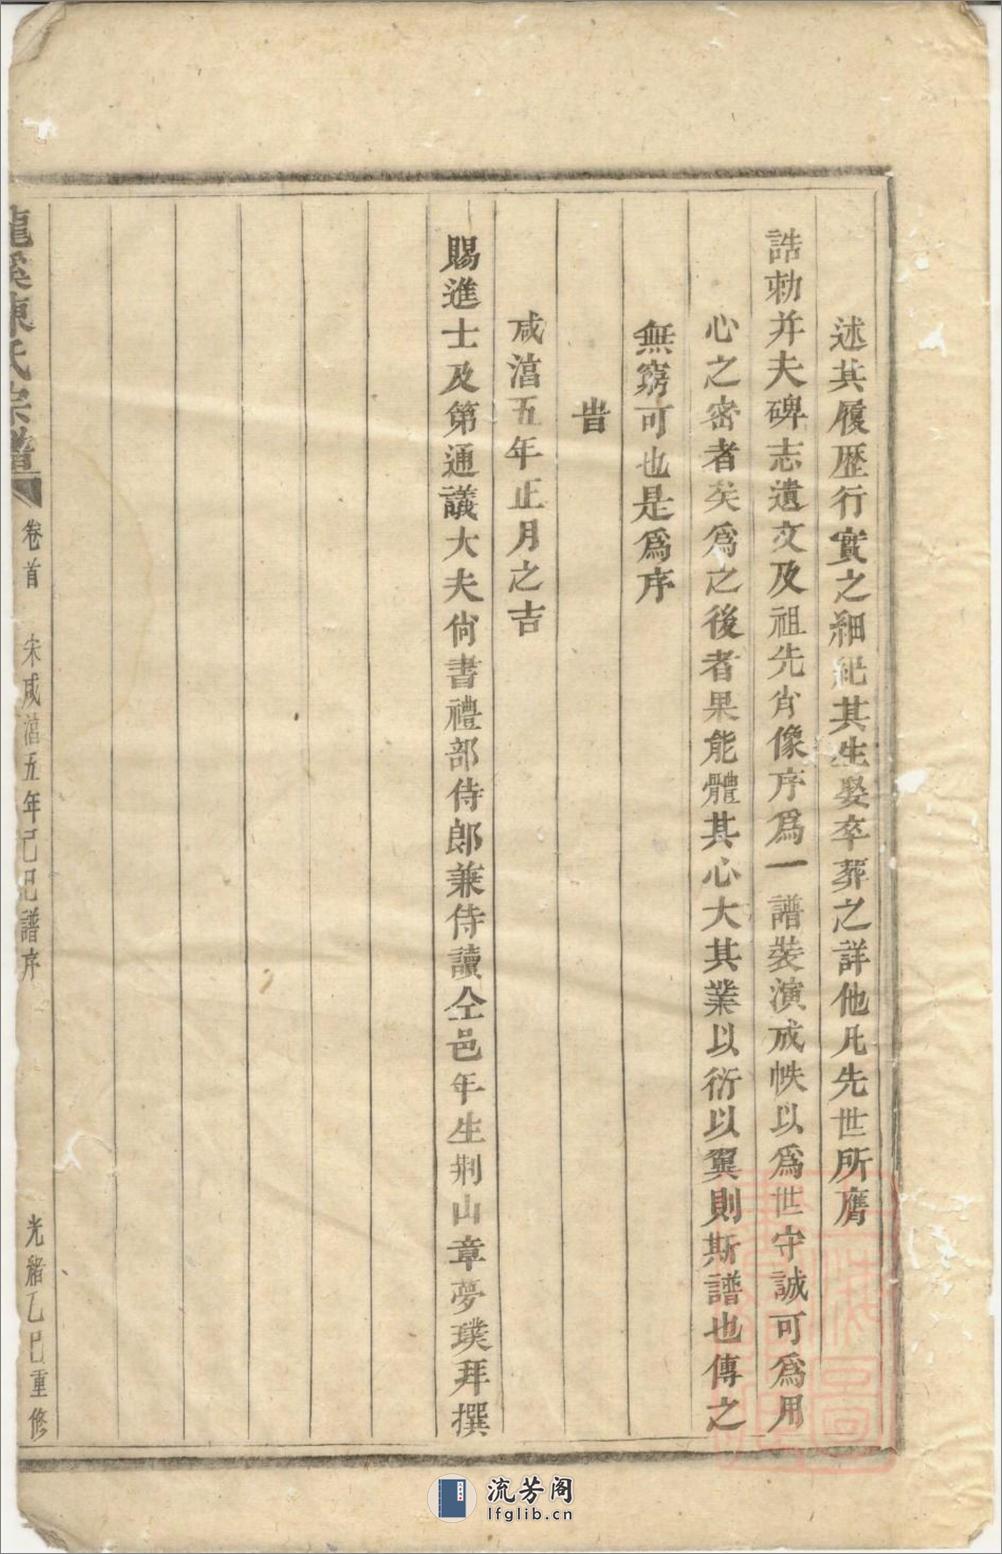 述其履歷行實之細紀其生娶卒葬之詳他凡先世所膺
誥勅并夫碑志遺文及祖先肖像序爲一譜裝演成帙以爲世守誠可爲用
心之密者矣爲之後者果能體其心大其業以衍以翼則斯譜也傳之
無窮可也是爲序
旹
咸淳五年正月之吉
賜進士及第通議大夫尚書禮部侍郎兼侍讀仝邑年生荆山章夢璞拜撰
龍溪陳氏宗譜 卷首 宋咸淳五年己巳譜序 光緒乙巳重修
流芳阁
lfglib.cn